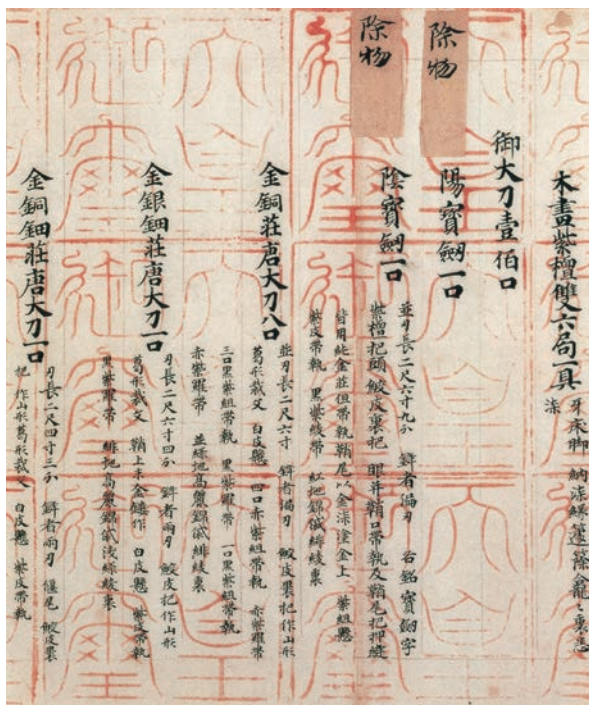 木畫紫檀雙六局一具
牙床脚 納漆縁籧篨龕〻裏悉
漆
御大刀壹佰口
除物
陽寶劒一口
除物
陰寶劒一口
並刃長二尺六寸九分 鋒者偏刃 各銘寶劒字
紫檀把頭 鮫皮裹把 眼并鞘口帶執及鞘尾把押縫
皆用純金莊但帶執鞘尾以金漆塗金上 紫組懸
紫皮帶執 黒紫綾帶 紅地錦袋緋綾裏
金銅莊唐大刀八口
並刃長二尺六寸 鋒者偏刃 鮫皮裹把作山形
葛形裁文 白皮懸 四口赤紫組帶執 赤紫羅帶
三口黒紫組帶執 黒紫羅帶 一口黒紫組帶執
赤紫羅帶 並緑地高麗錦袋緋綾裏
金銀鈿莊唐大刀一口
刃長二尺六寸四分 鋒者兩刃 鮫皮把作山形
葛形裁文 鞘上末金鏤作 白皮懸 紫皮帶執
黒紫羅帶 緋地高麗錦袋浅緑綾裏
金銅鈿莊唐大刀一口
刃長二尺四寸三分 鋒者兩刃 偃尾 鮫皮裹
把 作山形葛形裁文 白皮懸 紫皮帶執